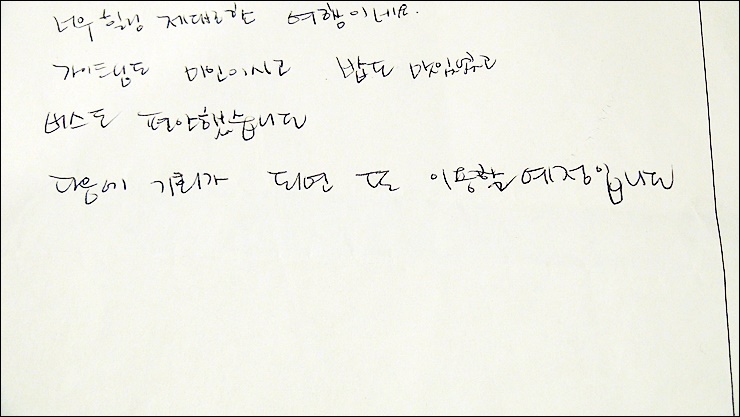 너무 힐링 제대로한 여행이네요.
가이드님도 미인이시고 밥도 맛있었고
버스도 편안했습니다
다음에 기회가 되면 또 이용할 예정입니다